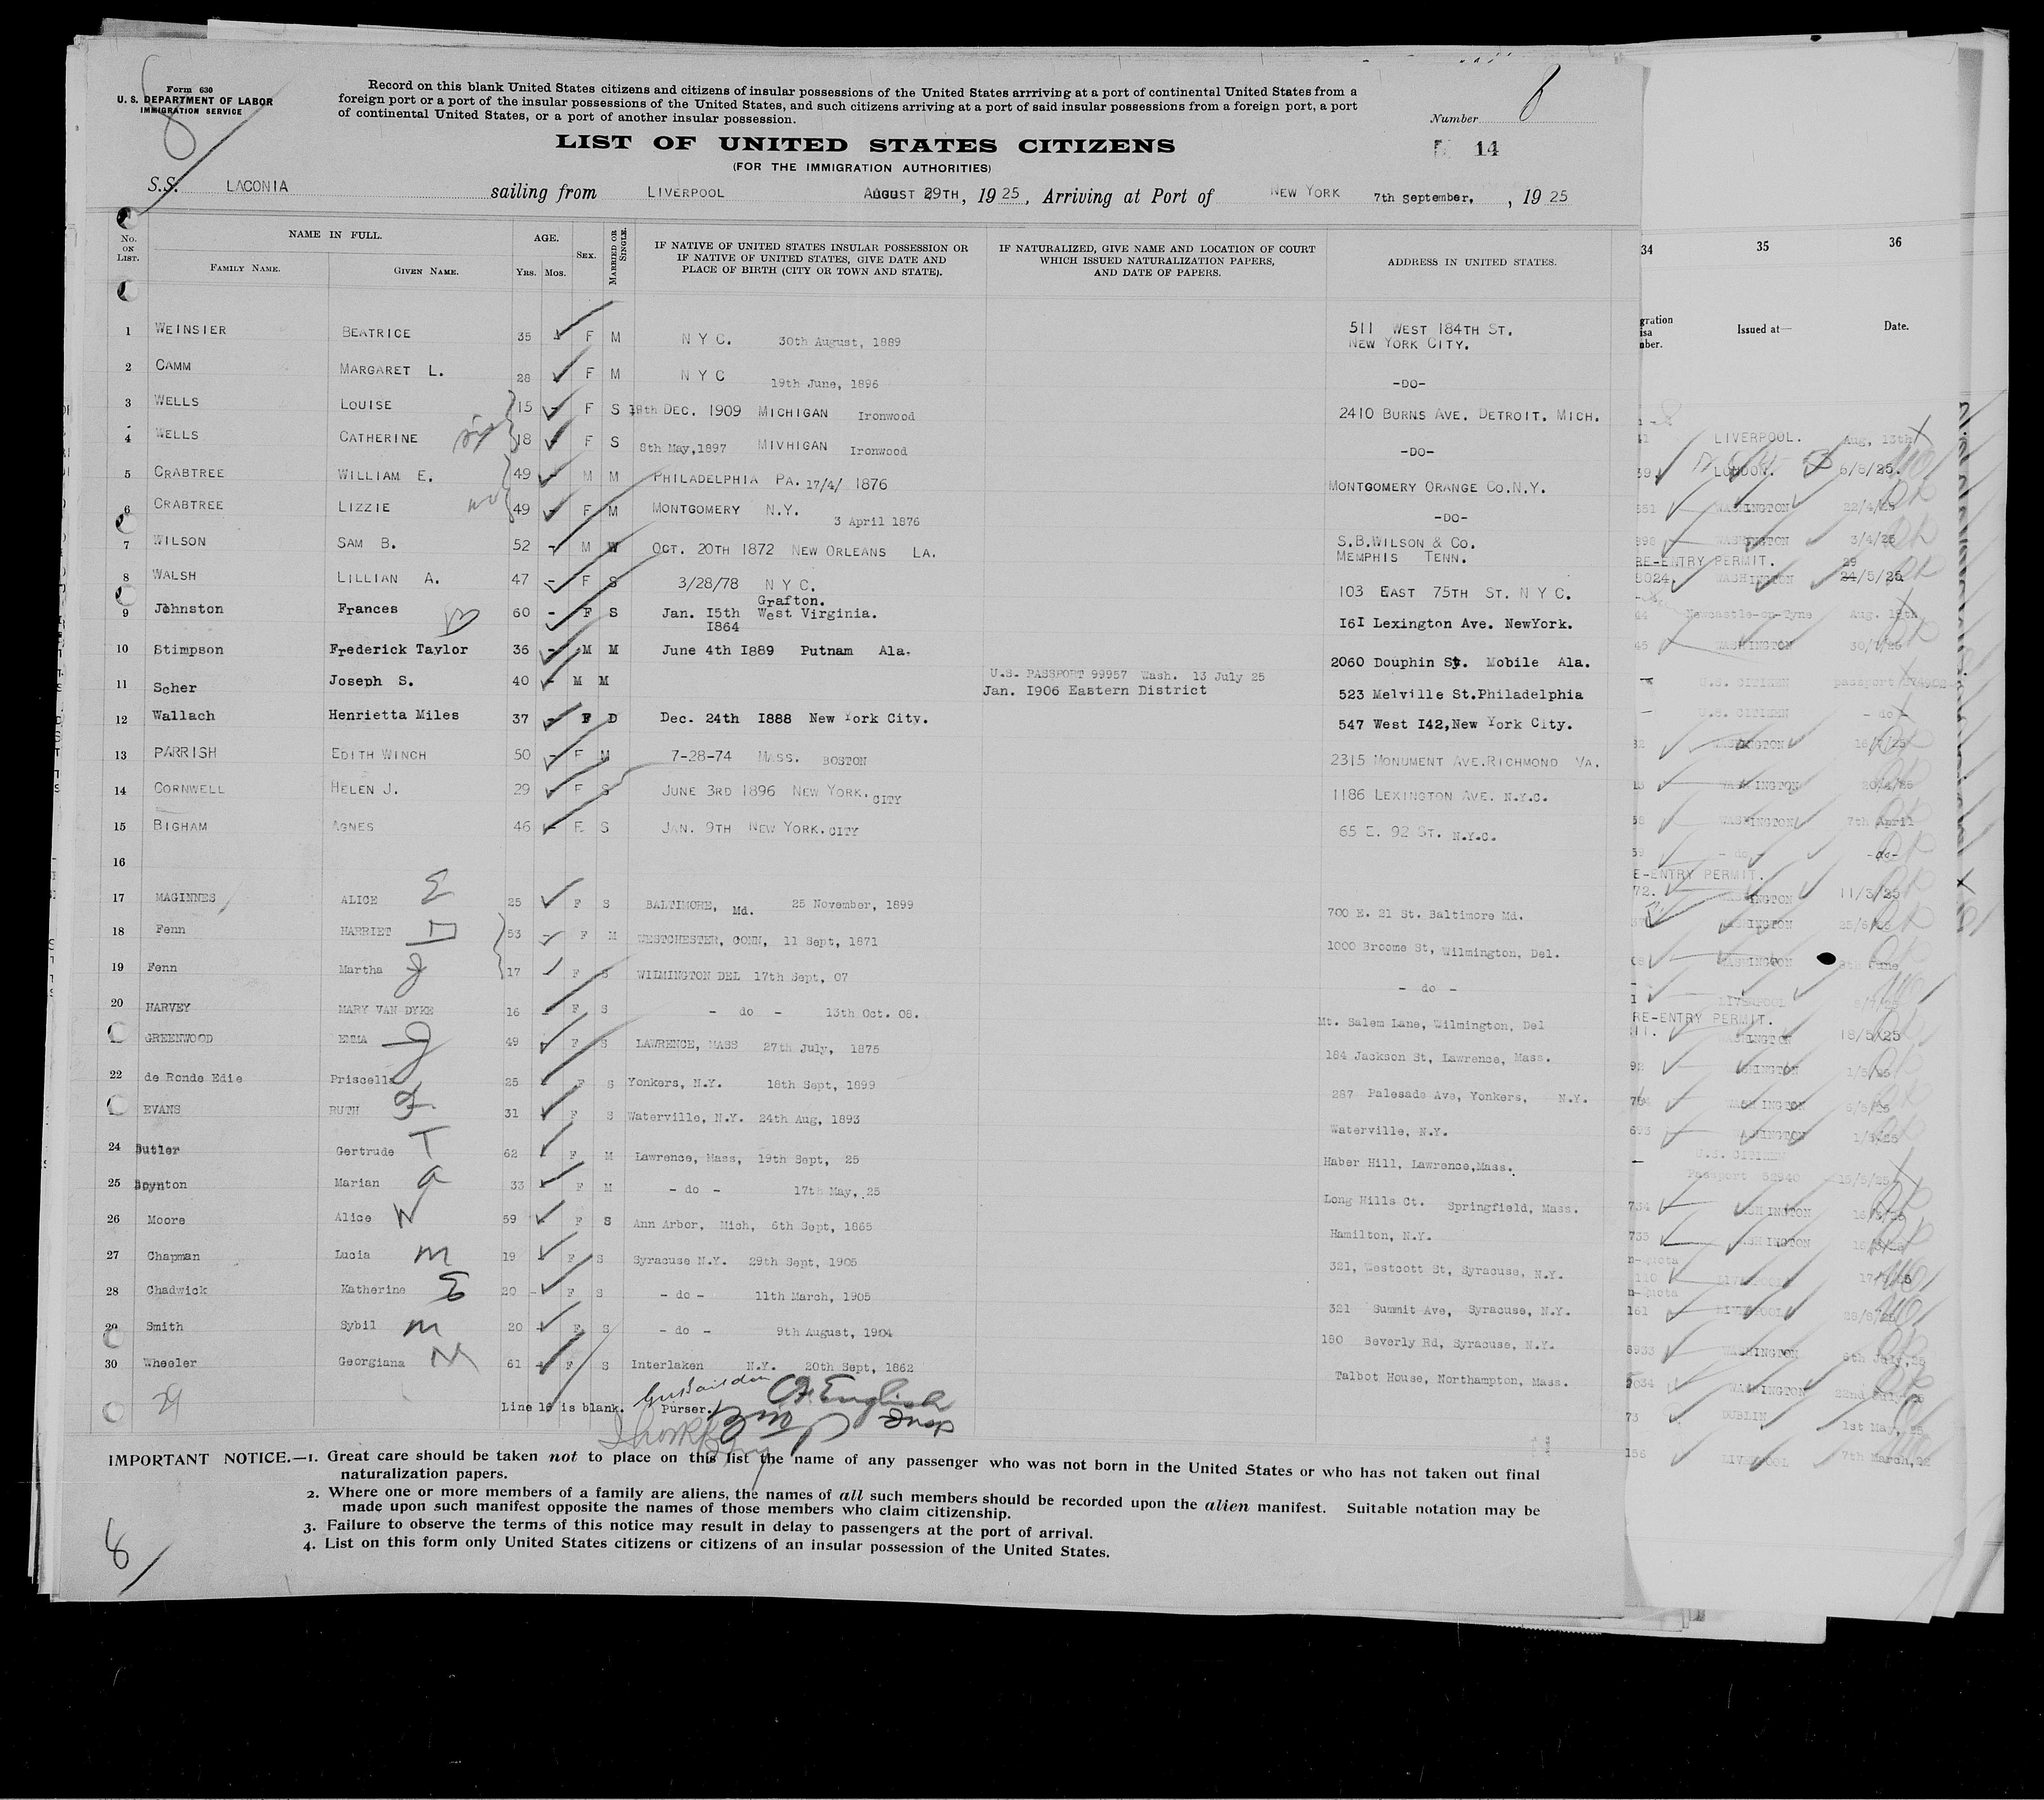 Form 630
U. S. DEPARTMENT OF LABOR
IMMIGRATION SERVICE
Record on this blank United States citizens and citizens of insular possessions of the United States arrriving at a port of continental United States from a
foreign port or a port of the insular possessions of the United States, and such citizens arriving at a port of said insular possessions from a foreign port, a port
of continental United States, or a port of another insular possession.
Number 8
LIST OF UNITED STATES CITIZENS
14
(FOR THE IMMIGRATION AUTHORITIES)
S.S. LACONIA sailing from LIVERPOOL AUGUST 29TH, 1925, Arriving at Port of NEW YORK 7th september, , 1925
No. ON LIST. NAME IN FULL. FAMILY NAME. GIVEN NAME. AGE. YRS. MOS. SEX. MARRIED OR SINGLE. IF NATIVE OF UNITED STATES INSULAR POSSESSION OR IF NATIVE OF UNITED STATES, GIVE DATE AND PLACE OF BIRTH (CITY OR TOWN AND STATE). IF NATURALIZED, GIVE NAME AND LOCATION OF COURT WHICH ISSUED NATURALIZATION PAPERS, AND DATE OF PAPERS. ADDRESS IN UNITED STATES.
1 WEINSIER BEATRICE 35 F M N Y C. 30th August, 1889 511 WEST 184TH ST. NEW YORK CITY.
2 CAMM MARGARET L. 28 F M N Y C 19th June, 1896 -DO-
3 WELLS LOUISE 15 F S 18th DEC. 1909 MICHIGAN Ironwood 2410 BURNS AVE. DETROIT. MICH.
4 WELLS CATHERINE 18 F S 8th May,1897 MIVHIGAN Ironwood -DO-
5 CRABTREE WILLIAM E. 49 M M PHILADELPHIA PA. 17/4/ 1876 MONTGOMERY ORANGE CO.N.Y.
6 CRABTREE LIZZIE 49 F M MONTGOMERY N.Y. 3 April 1876 -DO-
7 WILSON SAM B. 52 - M W OCT. 20TH 1872 NEW ORLEANS LA. S.B.WILSON & CO. MEMPHIS TENN.
8 WALSH LILLIAN A. 47 - F S 3/28/78 N Y C. 103 EAST 75TH ST. N Y C.
9 Johnston Frances 60 - F S Jan. I5th I864 Grafton. West Virginia. I6I Lexington Ave. NewYork.
10 Stimpson Frederick Taylor 36 - M M June 4th I889 Putnam Ala. 2060 Douphin St. Mobile Ala.
11 Scher Joseph S. 40 - M M U.S. PASSPORT 99957 Wash. 13 July 25 Jan. I906 Eastern District 523 Melville St.Philadelphia
12 Wallach Henrietta Miles 37 - F D Dec. 24th I888 New York City. 547 West I42,New York City.
13 PARRISH EDITH WINCH 50 - F M 7-28-74 MASS. BOSTON 2315 MONUMENT AVE.RICHMOND VA.
14 CORNWELL HELEN J. 29 F S JUNE 3RD 1896 NEW YORK. CITY 1186 LEXINGTON AVE. N.Y.C.
15 BIGHAM AGNES 46 - F S JAN. 9TH NEW YORK. CITY 65 E. 92 ST. N.Y.C.
16
17 MAGINNES ALICE 25 F S BALTIMORE, Md. 25 November, 1899 700 E. 21 St. Baltimore Md.
18 Fenn HARRIET 53 - F M WESTCHESTER, CONN, 11 Sept, 1871 1000 Broome St, Wilmington, Del.
19 Fenn Martha 17 F S WILMINGTON DEL 17th Sept, 07 - do -
20 HARVEY MARY VAN DYKE 16 - F S - do - 13th Oct. 08. Mt. Salem Lane, Wilmington, Del
GREENWOOD EMMA 49 F S LAWRENCE, MASS 27th July, 1875 184 Jackson St, Lawrence, Mass.
22 de Ronde Edie Priscella 25 F S Yonkers, N.Y. 18th Sept, 1899 287 Palesade Ave, Yonkers, N.Y.
EVANS RUTH 31 F S Waterville, N.Y. 24th Aug, 1893 Waterville, N.Y.
24 Butler Gertrude 62 F M Lawrence, Mass, 19th Sept, 25 Haber Hill, Lawrence,Mass.
25 Boynton Marian 33 F M - do - 17th May, 25 Long Hills Ct. Springfield, Mass.
26 Moore Alice 59 F S Ann Arbor, Mich, 6th Sept, 1865 Hamilton, N.Y.
27 Chapman Lucia 19 F S Syracuse N.Y. 29th Sept, 1905 321, Westcott St, Syracuse, N.Y.
28 Chadwick Katherine 20 - F S - do - 11th March, 1905 321 Summit Ave, Syracuse, N.Y.
29 Smith Sybil 20 F S - do - 9th August, 1904 180 Beverly Rd, Syracuse, N.Y.
30 Wheeler Georgiana 61 F S Interlaken N.Y. 20th Sept, 1862 Talbot House, Northampton, Mass.
29
Line 16 is blank. Purser. English Insp
IMPORTANT NOTICE.—1. Great care should be taken not to place on this list the name of any passenger who was not born in the United States or who has not taken out final
naturalization papers.
2. Where one or more members of a family are aliens, the names of all such members should be recorded upon the alien manifest. Suitable notation may be
made upon such manifest opposite the names of those members who claim citizenship.
3. Failure to observe the terms of this notice may result in delay to passengers at the port of arrival.
4. List on this form only United States citizens or citizens of an insular possession of the United States.
8
34 35 36
Issued at— Date.
LIVERPOOL. Aug, 13th
LONDON. 6/8/25.
WASHINGTON 22/4/25
WASHINGTON 3/4/25
RE-ENTRY PERMIT.
WASHINGTON 24/5/25
Newcastle-on-Tyne Aug.
WASHINGTON
U.S. CITIZEN passport
U.S. CITIZEN - do -
WASHINGTON
WASHINGTON
WASHINGTON 7th April
- do - -do-
E-ENTRY PERMIT.
72. WASHINGTON 11/3/25
WASHINGTON
WASHINGTON June
LIVERPOOL
RE-ENTRY PERMIT.
WASHINGTON 18/5/25
WASHINGTON
WASHINGTON
WASHINGTON
U.S. CITIZEN
Passport 52940
734 WASHINGTON
735 WASHINGTON
LIVERPOOL
161 LIVERPOOL
WASHINGTON 6th July,25
WASHINGTON
73 DUBLIN 1st May, 25
158 LIVERPOOL 7th March,